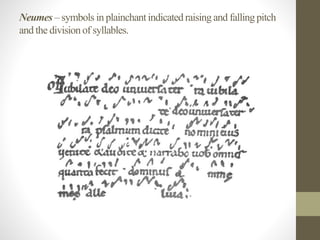 Neumes – symbols in plainchant indicated raising and falling pitch
and the division of syllables.
Iubilate deo uniuersa ter ra iubila
te deo uniuersa ter
ra psalmum dicite nomini eius
uenite & audite & narrabo uobis omnes
quanta fecit dominus a nime
alle luia.